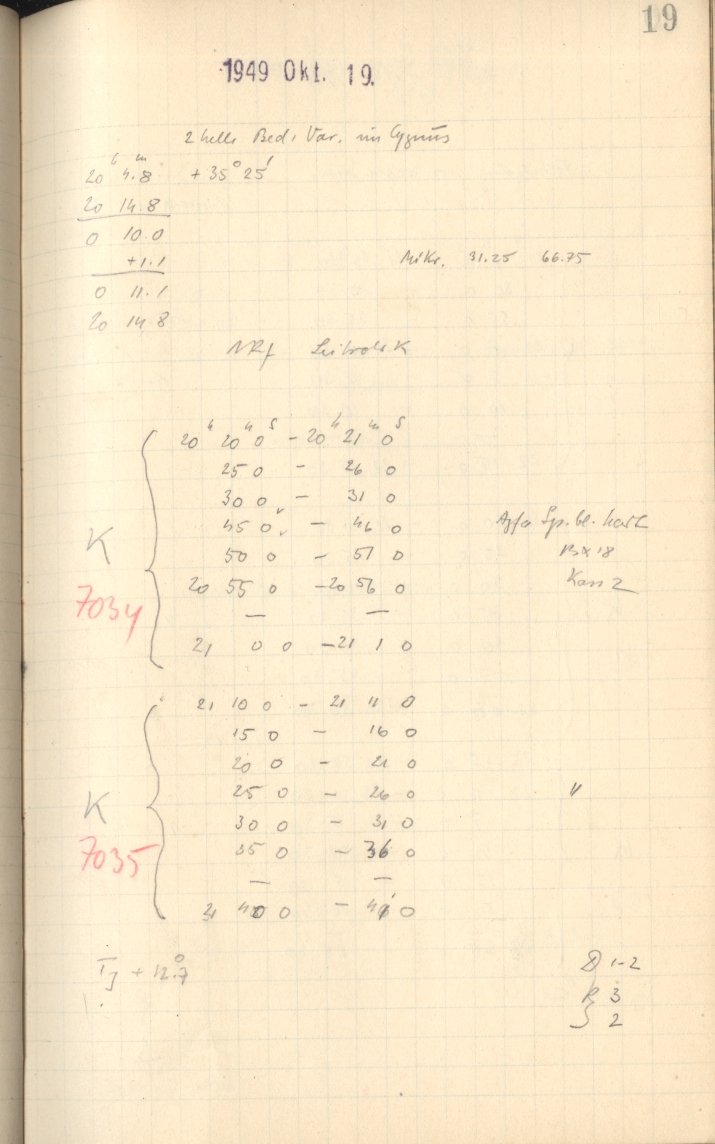 19
1949 Okt. 19.
2 helle Bed. Var. im Cygnus
20h 4.8m + 35° 25'
20 14.8
0 10.0
+1.1 Mikr. 31.25 66.75
0 11.1
20 14 8
K
20h 20m 0s - 20h 21m 0s
25 0 - 26 0
30 0 - 31 0
45 0 - 46 0 Agfa Sp. bl. hart
K 50 0 - 51 0 18
7034 20 55 0 - 20 56 0 Kass 2
— —
21 0 0 - 21 1 0
21 10 0 - 21 11 0
15 0 - 16 0
20 0 - 21 0
K 25 0 - 26 0 "
30 0 - 31 0
7035 35 0 - 36 0
— —
21 40 0 - 41 0
+ 12°.7 D 1-2
R 3
S 2